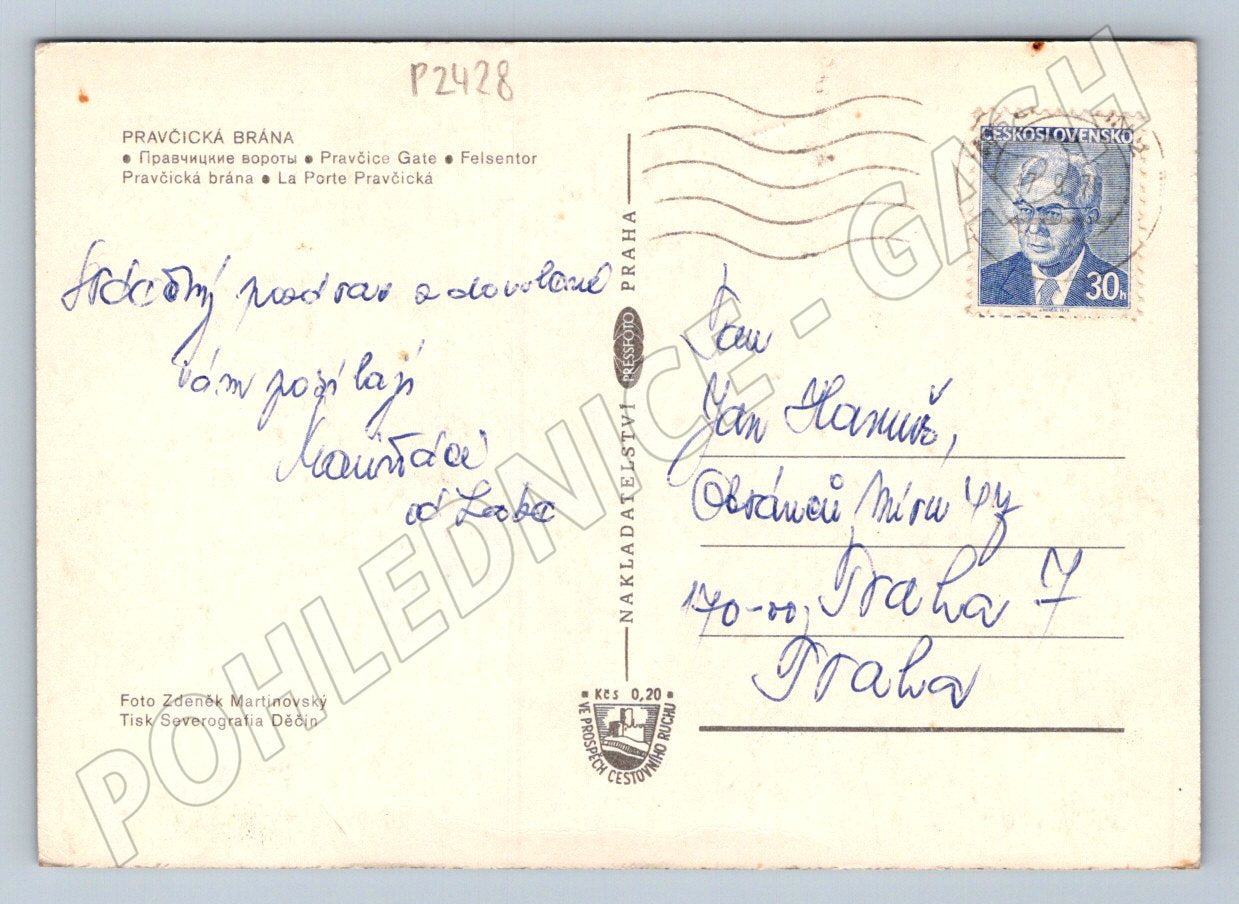 P2428
PRAVČICKÁ BRÁNA
• Правчицкие вороты • Pravčice Gate • Felsentor
Pravčická brána • La Porte Pravčická
Srdečný pozdrav z dovolené
Vám posílají
od Labe
Foto Zdeněk Martinovský
Tisk Severografia Děčín
NAKLADATELSTVÍ PRESSFOTO PRAHA
Kčs 0,20
VE PROSPĚCH CESTOVNÍHO RUCHU
ČESKOSLOVENSKO
30h
Pan
Jan Hanuš,
Obránců Míru
170-00, Praha 7
Praha
POHLEDNICE - GASH